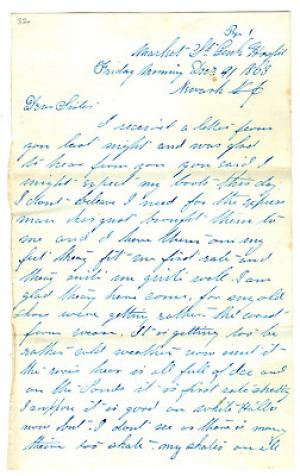 Pg 1
Market St Genl Hospital
Friday Morning Dec 4 1863
Newark N J
Dear Sister
I received a letter from
you last night and was glad
to hear from you you said I
might expect my boots this day
I dont I need for the express
man has just brought them to
me and I have them on my
feet thay fit me first rate and
thay suite me quite well I am
glad thay have come, for my old
shoes were getting rather the worst
from wear. It is getting to be
rather cold weather now isent it
the river hear is all full of Ice and
on the Ponds it is first rate skating
I suppose it is good on White Hills
now but I dont see as there is many
there to skate my skates on all